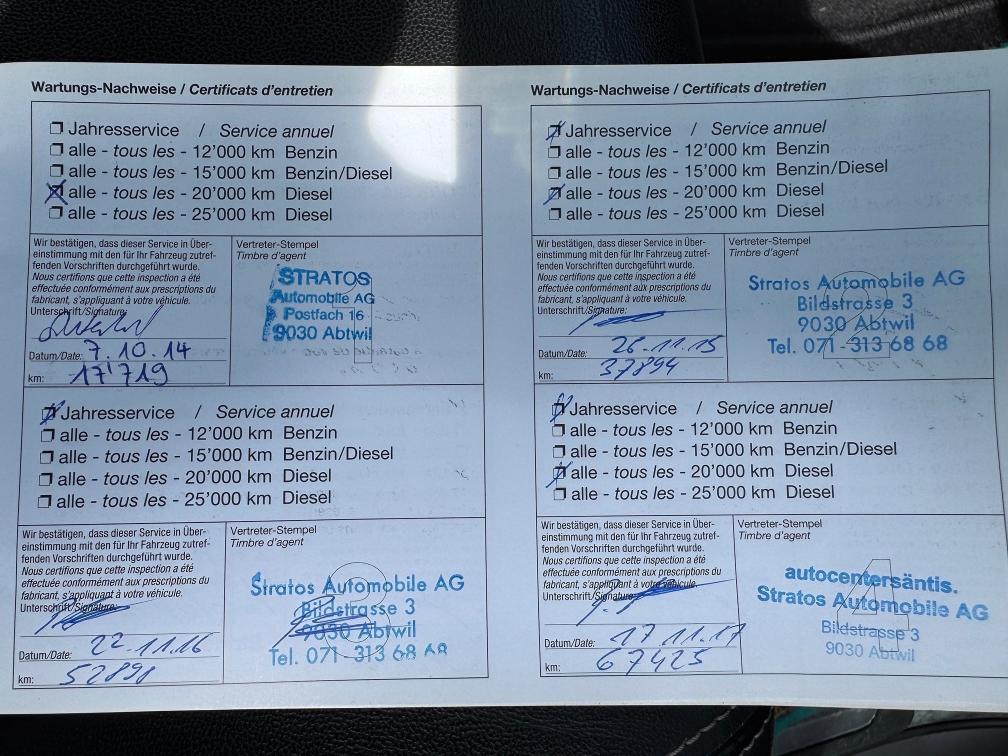 Wartungs-Nachweise / Certificats d'entretien
Jahresservice / Service annuel
alle - tous les - 12'000 km Benzin
alle - tous les - 15'000 km Benzin/Diesel
alle - tous les - 20'000 km Diesel
alle - tous les - 25'000 km Diesel
Wir bestätigen, dass dieser Service in Über-
einstimmung mit den für Ihr Fahrzeug zutref-
fenden Vorschriften durchgeführt wurde.
Nous certifions que cette inspection a été
effectuée conformément aux prescriptions du
fabricant, s'appliquant à votre véhicule.
Unterschrift/Signature:
Datum/Date: 7.10.14
km: 17'719
Vertreter-Stempel
Timbre d'agent
STRATOS
Automobile AG
Postfach 16
9030 Abtwil
Jahresservice / Service annuel
alle - tous les - 12'000 km Benzin
alle - tous les - 15'000 km Benzin/Diesel
alle - tous les - 20'000 km Diesel
alle - tous les - 25'000 km Diesel
Wir bestätigen, dass dieser Service in Über-
einstimmung mit den für Ihr Fahrzeug zutref-
fenden Vorschriften durchgeführt wurde.
Nous certifions que cette inspection a été
effectuée conformément aux prescriptions du
fabricant, s'appliquant à votre véhicule.
Unterschrift/Signature:
Datum/Date: 22.11.16
km: 52898
Vertreter-Stempel
Timbre d'agent
Stratos Automobile AG
Bildstrasse 3
9030 Abtwil
Tel. 071-313 68 68
Wartungs-Nachweise / Certificats d'entretien
Jahresservice / Service annuel
alle - tous les - 12'000 km Benzin
alle - tous les - 15'000 km Benzin/Diesel
alle - tous les - 20'000 km Diesel
alle - tous les - 25'000 km Diesel
Wir bestätigen, dass dieser Service in Über-
einstimmung mit den für Ihr Fahrzeug zutref-
fenden Vorschriften durchgeführt wurde.
Nous certifions que cette inspection a été
effectuée conformément aux prescriptions du
fabricant, s'appliquant à votre véhicule.
Unterschrift/Signature:
Datum/Date: 26.11.15
km: 37894
Vertreter-Stempel
Timbre d'agent
Stratos Automobile AG
Bildstrasse 3
9030 Abtwil
Tel. 071-313 68 68
Jahresservice / Service annuel
alle - tous les - 12'000 km Benzin
alle - tous les - 15'000 km Benzin/Diesel
alle - tous les - 20'000 km Diesel
alle - tous les - 25'000 km Diesel
Wir bestätigen, dass dieser Service in Über-
einstimmung mit den für Ihr Fahrzeug zutref-
fenden Vorschriften durchgeführt wurde.
Nous certifions que cette inspection a été
effectuée conformément aux prescriptions du
fabricant, s'appliquant à votre véhicule.
Unterschrift/Signature:
Datum/Date: 17.11.17
km: 67425
Vertreter-Stempel
Timbre d'agent
autocentersäntis.
Stratos Automobile AG
Bildstrasse 3
9030 Abtwil
4